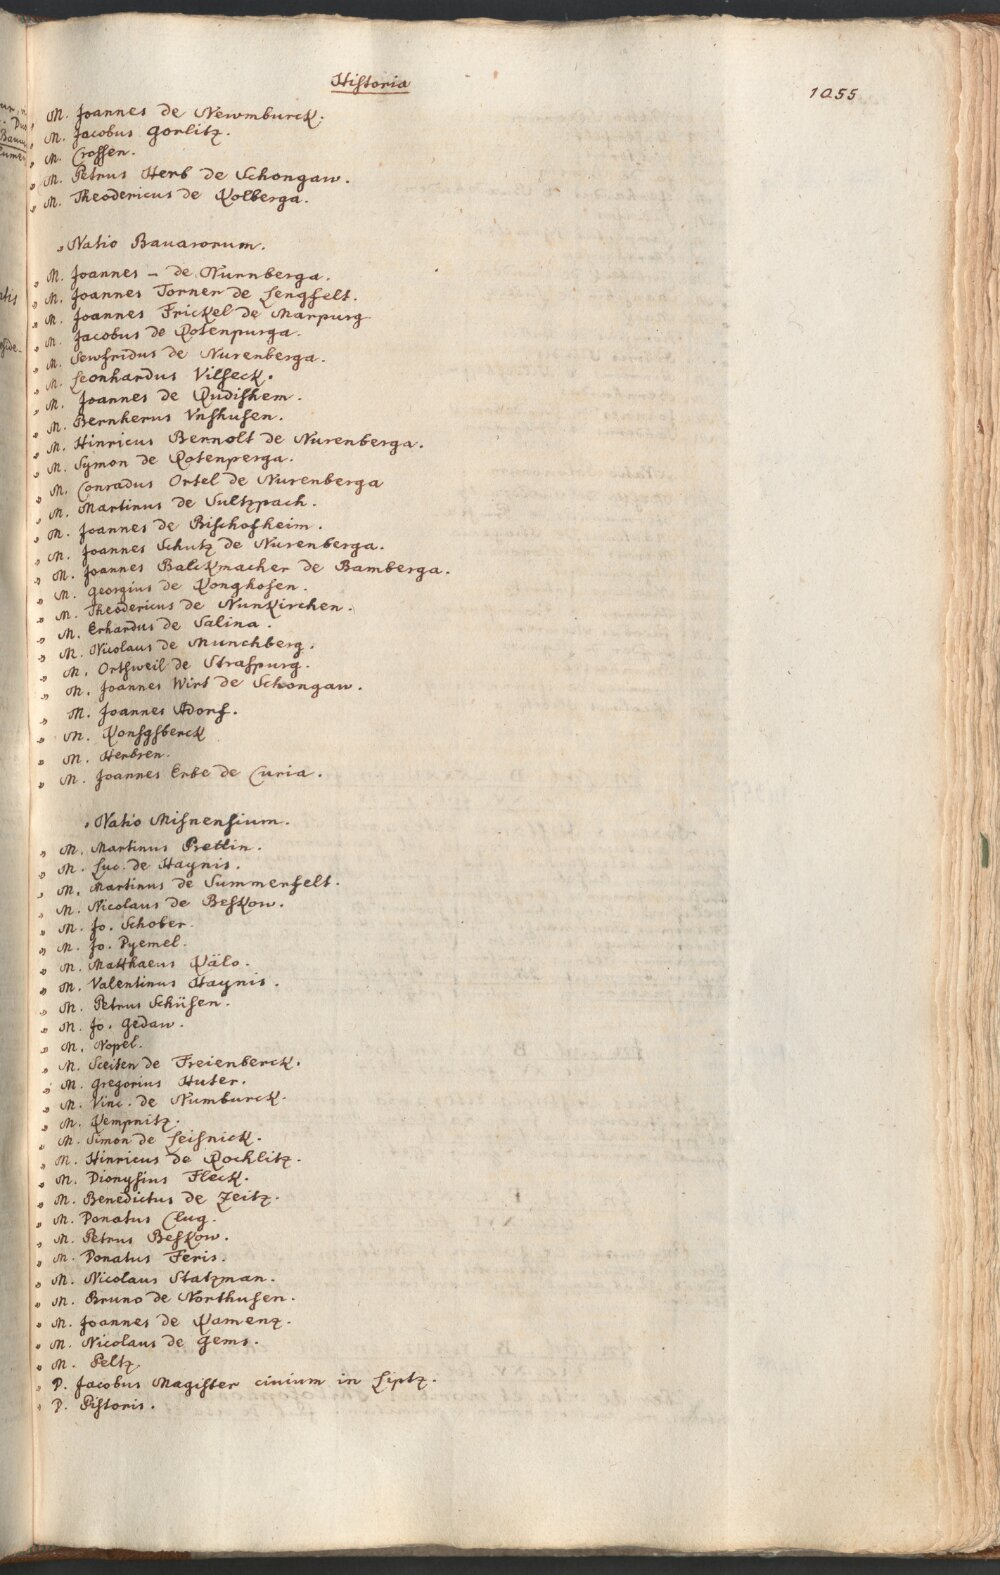 Historia
1055
„ M. Joannes de Newmburck.
„ M. Jacobus Gorlitz.
„ M. Crossen.
„ M. Petrus Herb de Schongaw.
„ M. Theodericus de Kolberga.
„ Natio Bavarorum.
„ M. Joannes – de Nurnberga.
„ M. Joannes Torner de Lengfelt.
„ M. Joannes Frickel de Marpurg
„ M. Jacobus de Rotenpurga.
„ M. Sewfridus de Nurenberga.
„ M. Leonhardus Vilseck.
„ M. Joannes de Rudishem.
„ M. Bernherus Vnshusen.
„ M. Hinricus Bernolt de Nurenberga.
„ M. Symon de Rotenperga.
„ M. Conradus Ortel de Nurenberga
„ M. Martinus de Sultzpach.
„ M. Joannes de Bischofheim.
„ M. Joannes Schutz de Nurenberga.
„ M. Joannes Balckmacher de Bamberga.
„ M. Georgius de Konghofen.
„ M. Theodericus de Nunkirchen.
„ M. Erhardus de Salina.
„ M. Nicolaus de Munchberg.
„ M. Ortsweil de Straspurg.
„ M. Joannes Wirt de Schongaw.
„ M. Joannes Adorf.
„ M. Konsgsberck
„ M. Herbsen.
„ M. Joannes Erbe de Curia.
„ Natio Misnensium.
„ M. Martinus Prettin.
„ M. Luc. de Haynis.
„ M. Martinus de Summerfelt.
„ M. Nicolaus de Beskow.
„ M. Jo. Schober.
„ M. Jo. Dyemel.
„ M. Matthaeus Kälo.
„ M. Valentinus Haynis.
„ M. Petrus Schüsen.
„ M. Jo. Gedaw.
„ M. Nopel.
„ M. Sceiten de Freienberck.
„ M. Gregorius Huter.
„ M. Vinc. de Numburck.
„ M. Kempnitz.
„ M. Simon de Leisnick.
„ M. Hinricus de Rochlitz.
„ M. Dionysius Fleck.
„ M. Benedictus de Zeitz.
„ M. Donatus Clug.
„ M. Petrus Beskow.
„ M. Donatus Feris.
„ M. Nicolaus Statzman.
„ M. Bruno de Northusen.
„ M. Joannes de Kamenz.
„ M. Nicolaus de Gems.
„ M. Peltz.
„ D. Jacobus Magister civium in Liptz.
„ D. Pistoris.